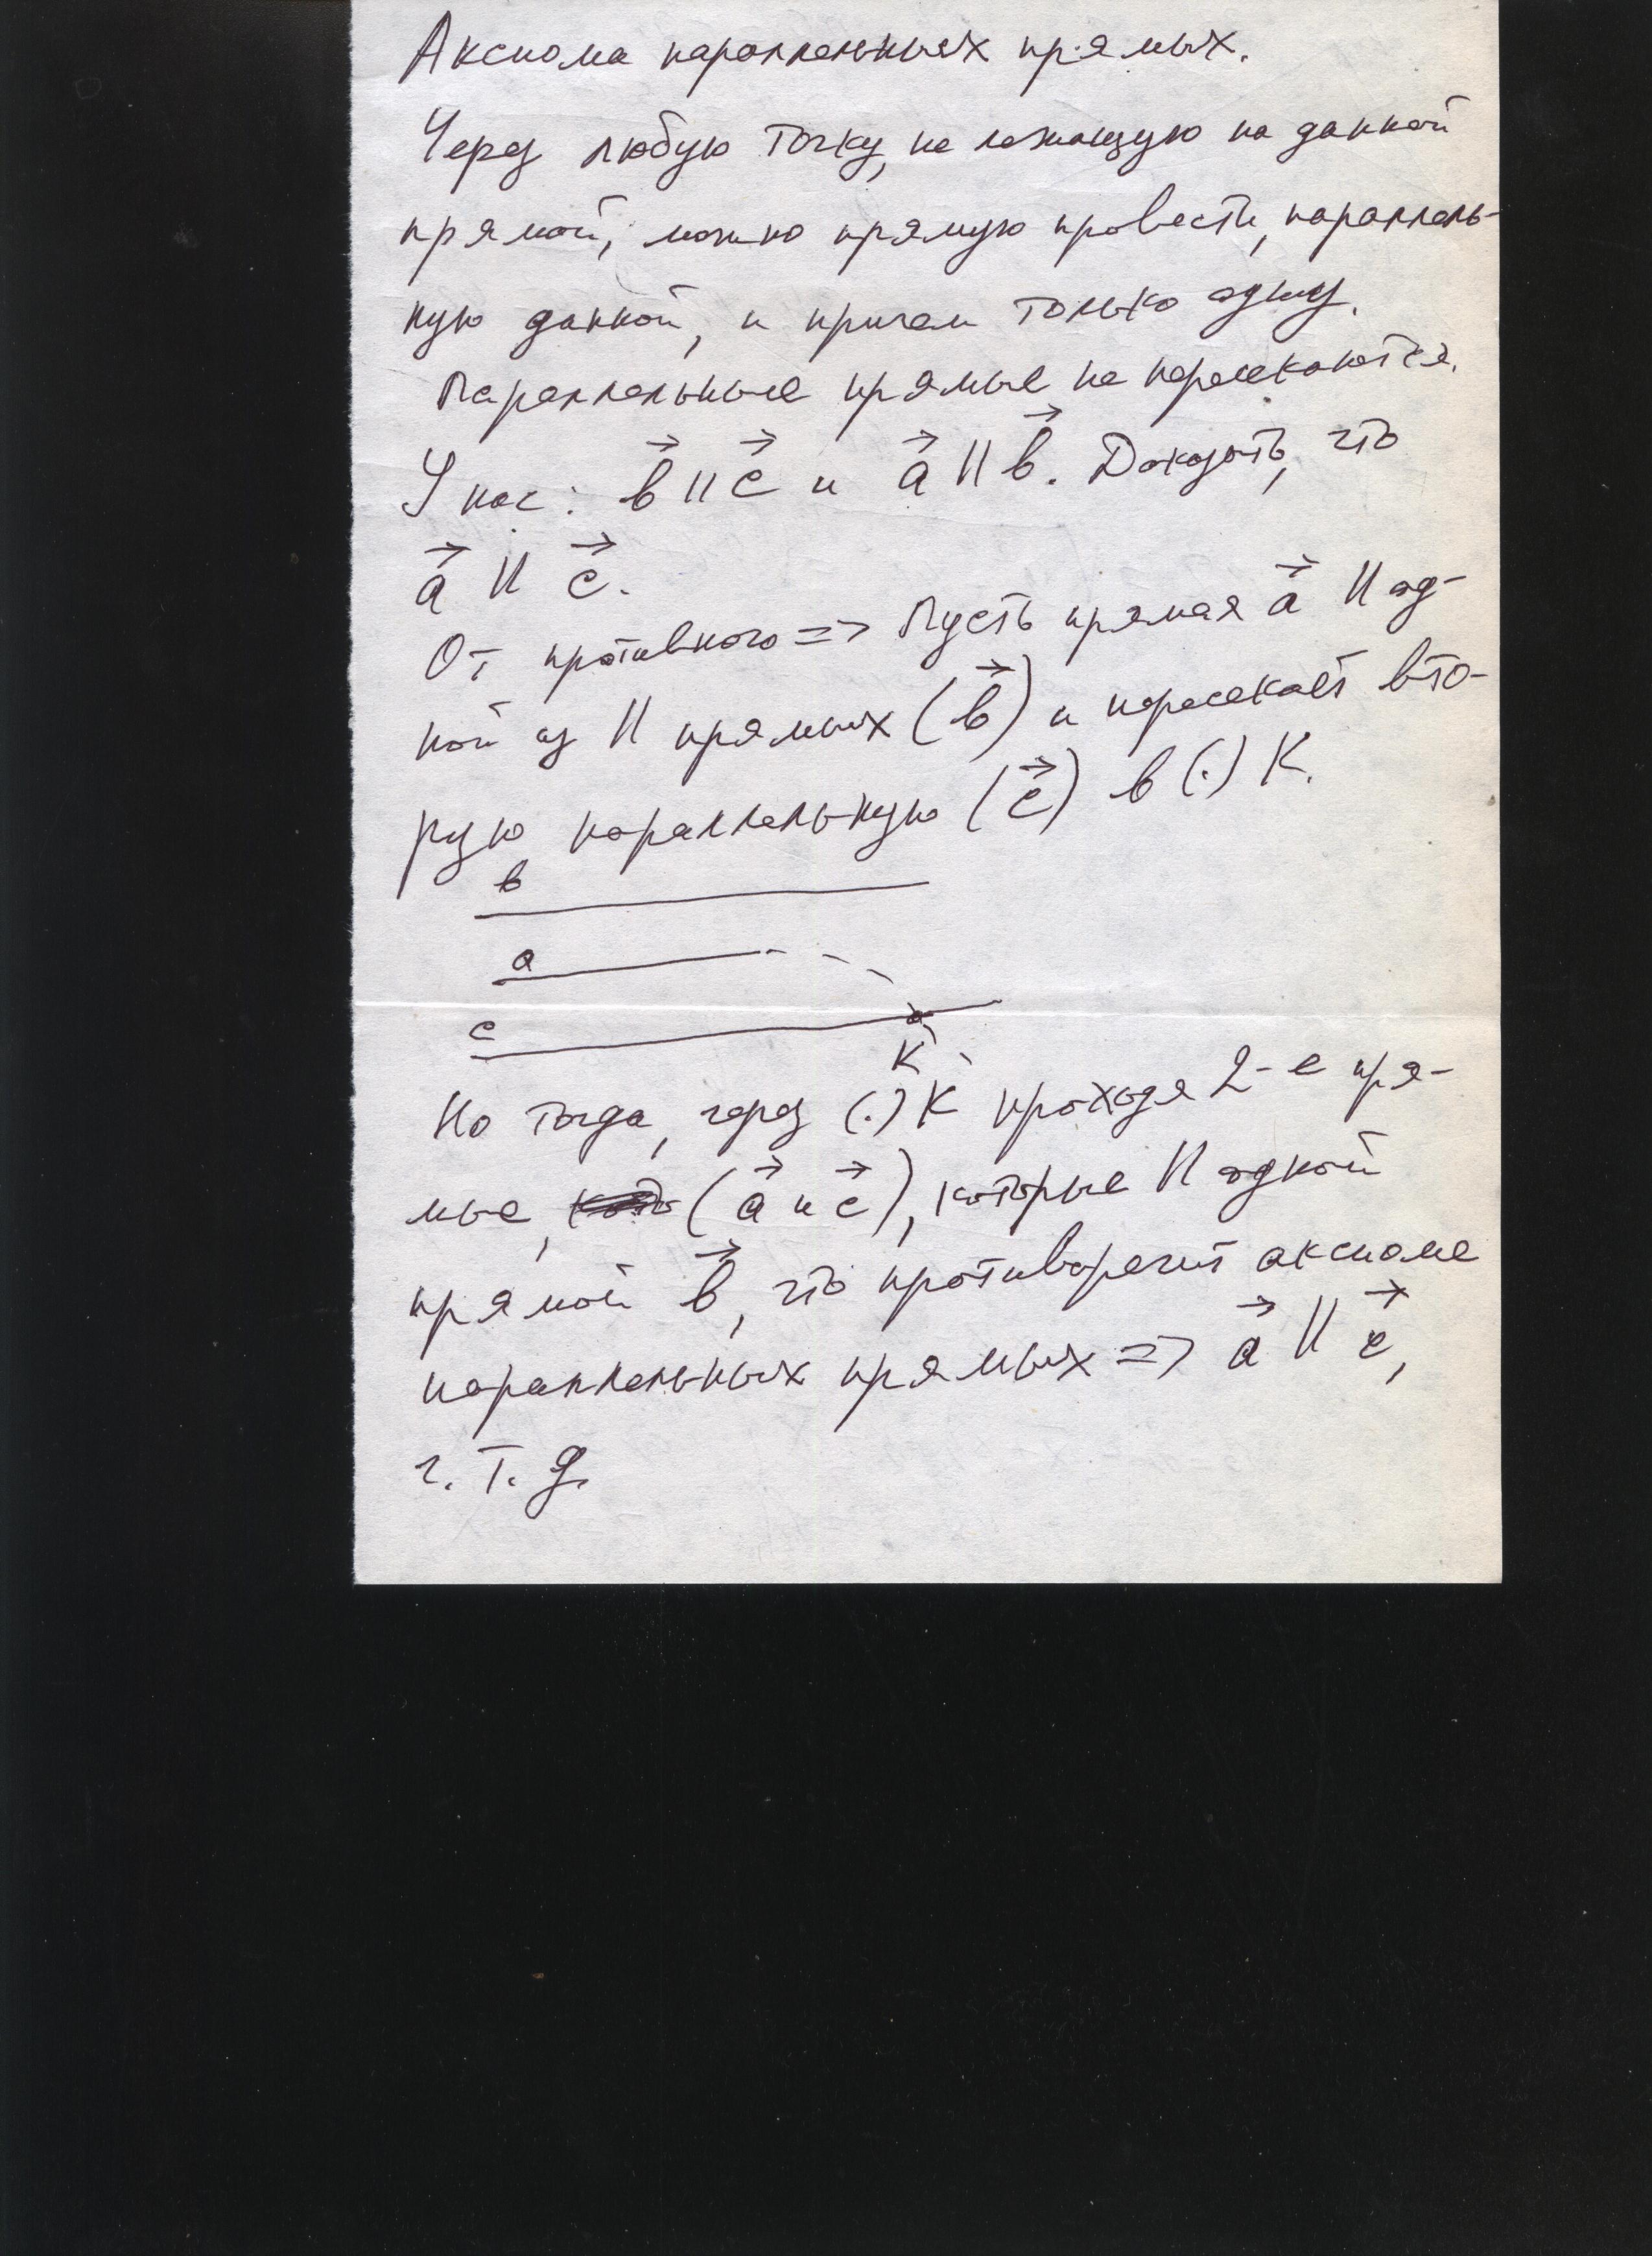 Аксиома параллельных прямых.
Через любую точку, не лежащую на данной
прямой, можно прямую провести, параллель-
ную данной, и причем только одну.
Параллельные прямые не пересекаются.
У нас: b⃗ || c⃗ и a⃗ || b⃗. Доказать, что
a⃗ || c⃗.
От противного => Пусть прямая a⃗ || од-
ной из || прямых (b⃗) и пересекает вто-
рую параллельную (c⃗) в (.) К.
в
а
с
К
Но тогда, через (.) К проходя 2-е пря-
мые, (a⃗ и c⃗), которые || одной
прямой b⃗, что противоречит аксиоме
параллельных прямых => a⃗ || c⃗,
ч. т. д.